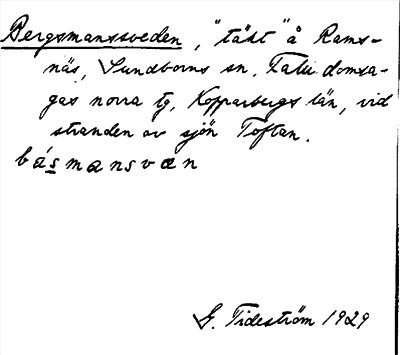 Bergsmanssveden, "täkt" å Rams-
näs, Sundborns sn, Falu domsa-
gas norra tg, Kopparbergs län, vid
stranden av sjön Toftan.
básmansvæn
G. Tideström 1929